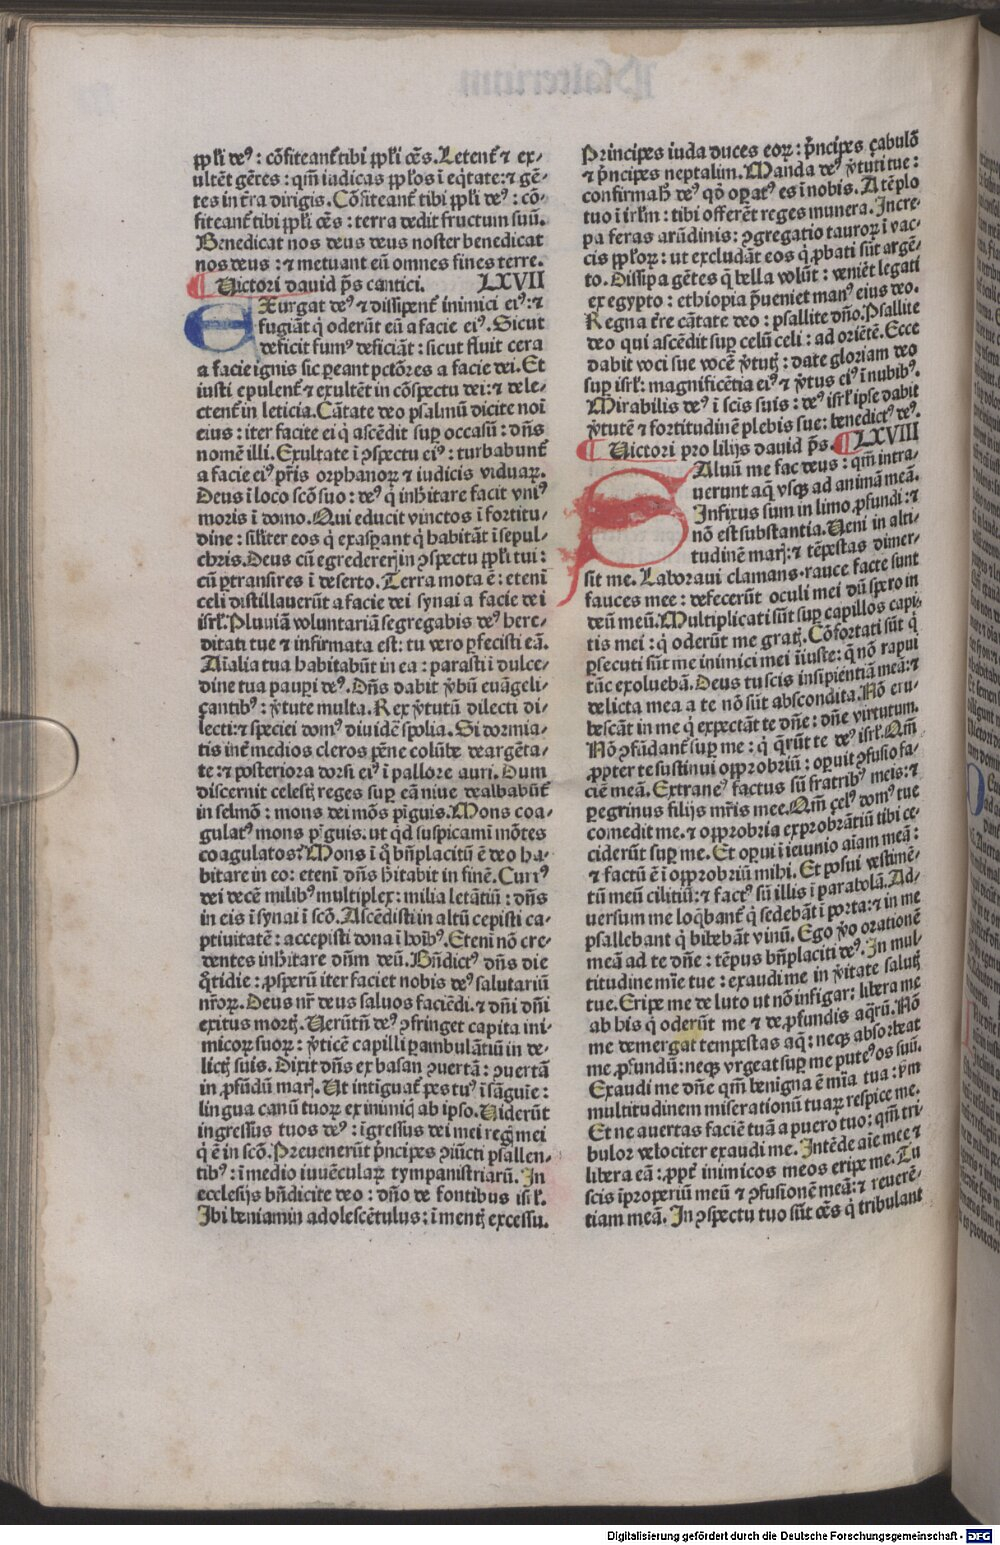 ꝓpl'i deꝰ : cōfiteant̄ tibi ꝓpl'i oēs. Letent̄ ⁊ ex-
ultēt gētes : qm̄ iudicas ꝓpl'os ī eq̄tate : ⁊ gē-
tes in t̄ra dirigis. Cōfiteant̄ tibi ꝓpl'i deꝰ : cō-
fiteant̄ tibi ꝓpl'i oēs : terra dedit fructum suū.
Benedicat nos deus deus noster benedicat
nos deus : ⁊ metuant eū omnes fines terre.
¶ Victori dauid p̄s cantici. LXVII
EXurgat deꝰ ⁊ dissipent̄ inimici eiꝰ : ⁊
fugiāt q̇ oderūt eū a facie eiꝰ. Sicut
deficit fumꝰ deficiāt : sicut fluit cera
a facie ignis sic ꝑeant pctōres a facie dei. Et
iusti epulent̄ ⁊ exultēt in cōspectu dei : ⁊ dele-
ctent̄ in leticia. Cātate deo psalmū dicite noī
eius : iter facite ei q̇ ascēdit suꝑ occasū : dn̄s
nomē illi. Exultate ī ꝯspectu eiꝰ : turbabunt̄
a facie eiꝰ pr̄is orphanoꝝ ⁊ iudicis viduaꝝ.
Deus ī loco scō suo : deꝰ q̇ inh̄itare facit vniꝰ
moris ī domo. Qui educit vinctos ī fortitu-
dine : sil'iter eos q̇ exasꝑant q̇ habitāt ī sepul-
chris. Deus cū egredereꝭ in ꝯspectu ꝓpl'i tui :
cū ꝑtransires ī deserto. Terra mota ē : etenī
celi distillauerūt a facie dei synai a facie dei
isrl'. Pluuiā voluntariā segregabis deꝰ here-
ditati tue ⁊ infirmata est : tu vero ꝑfecisti eā.
Aīalia tua habitabūt in ea : parasti ī dulce-
dine tua pauꝑi deꝰ. Dn̄s dabit v̄bū euāgeli-
çantibꝰ : v̄tute multa. Rex v̄tutū dilecti di-
lecti : ⁊ speciei domꝰ diuidē spolia. Si dormia-
tis int̄ medios cleros pēne colūbe deargēta-
te : ⁊ posteriora dorsi eiꝰ ī pallore auri. Dum
discernit celestꝭ reges suꝑ eā niue dealbabūt̄
in selmō : mons dei mōs pīguis. Mons coa-
gulatꝰ mons pīguis. ut qd̄ suspicamī mōtes
coagulatos? Mons ī q̊ bn̄placitū ē deo ha-
bitare in eo : etenī dn̄s h̄itabit in finē. Currꝰ
dei decē milibꝰ multiplex : milia letātiū : dn̄s
in eis ī synai ī scō. Ascēdisti in altū cepisti ca-
ptiuitatē : accepisti dona ī hoībꝰ. Etenī nō cre-
dentes inh̄itare dn̄m deū. Bn̄dictꝰ dn̄s die
q̊tidie : ꝓsperū iter faciet nobis deꝰ salutariū
nr̄oꝝ. Deus nr̄ deus saluos faciēdi. ⁊ dn̄i dn̄i
exitus mortꝭ. Verūtn̄ deꝰ ꝯfringet capita ini-
micoꝝ suoꝝ : v̄ticē capilli ꝑambulātiū in de-
lictꝭ suis. Dixit dn̄s ex basan ꝯuertā : ꝯuertā
in ꝓfūdū marꝭ. Ut intiguat̄ pes tuꝰ ī sāguīe :
lingua canū tuoꝝ ex inimiq̇ ab ipso. Viderūt
ingressus tuos deꝰ : īgressus dei mei regꝭ mei
q̇ ē in scō. Preuenerūt p̄ncipes ꝯiūcti psallen-
tibꝰ : ī medio iuuēculaꝝ tympanistriarū. In
ecclesijs bn̄dicite deo : dn̄o de fontibus isrl'.
Ibi beniamin adolescētulus : ī mentꝭ excessu.
Principes iuda duces eoꝝ : p̄ncipes çabulō
⁊ p̄ncipes neptalim. Manda deꝰ v̄tuti tue :
confirma h̄ deꝰ qd̄ oꝑatꝰ es ī nobis. A tēplo
tuo ī irl'm : tibi offerēt reges munera. Incre-
pa feras arūdinis : ꝯgregatio tauroꝝ ī vac-
cis ꝓpl'oꝝ : ut excludāt eos q̇ ꝓbati sūt argē-
to. Dissipa gētes q̄ bella volūt : veniēt legati
ex egypto : ethiopia p̄ueniet manꝰ eius deo.
Regna t̄re cātate deo : psallite dn̄o. Psallite
deo qui ascēdit suꝑ celū celi : ad oriētē. Ecce
dabit voci sue vocē v̄tutꝭ : date gloriam deo
suꝑ isrl' : magnificētia eiꝰ ⁊ v̄tus eiꝰ ī nubibꝰ.
Mirabilis deꝰ ī scīs suis : deꝰ isrl' ipse dabit
v̄tutē ⁊ fortitudinē plebis sue : benedictꝰ deꝰ.
¶ Victori pro lilijs dauid p̄s. ¶ LXVIII
SAluū me fac deus : qm̄ intra-
uerunt aq̄ vsqꝫ ad animā meā.
Infixus sum in limo ꝓfundi : ⁊
nō est substantia. Veni in alti-
tudinē marꝭ : ⁊ tēpestas dimer-
sit me. Laboraui clamans. rauce facte sunt
fauces mee : defecerūt oculi mei dū sꝑo in
deū meū. Multiplicati sūt suꝑ capillos capi-
tis mei : q̇ oderūt me gratꝭ. Cōfortati sūt q̇
ꝑsecuti sūt me inimici mei īiuste : q̄ nō rapui
tūc exoluebā. Deus tu scis insipientiā meā : ⁊
delicta mea a te nō sūt abscondita. Nō eru-
bescāt in me q̇ expectāt te dn̄e : dn̄e virtutum.
Nō ꝯfūdant̄ suꝑ me : q̇ q̄rūt te deꝰ isrl'. Qm̄
ꝓpter te sustinui opprobriū : oꝑuit ꝯfusio fa-
ciē meā. Extraneꝰ factus sū fratribꝰ meis : ⁊
ꝑegrinus filijs mr̄is mee. Qm̄ çelꝰ domꝰ tue
comedit me. ⁊ opprobria exprobrātiū tibi ce-
ciderūt suꝑ me. Et oꝑui ī ieiunio aīam meā :
⁊ factū ē ī opprobriū mihi. Et posui vestimē-
tū meū cilitiū : ⁊ factꝰ sū illis ī parabolā. Ad-
uersum me loq̄bant̄ q̇ sedebāt ī porta : ⁊ in me
psallebant q̇ bibebāt vinū. Ego v̄o orationē
meā ad te dn̄e : tēpus bn̄placiti deꝰ. In mul-
titudine mīe tue : exaudi me in v̄itate salutꝭ
tue. Eripe me de luto ut nō infigar : libera me
ab his q̇ oderūt me ⁊ de ꝓfundis aq̄rū. Nō
me demergat tempestas aq̄ : neqꝫ absorbeat
me ꝓfundū : neqꝫ vrgeat suꝑ me puteꝰ os suū.
Exaudi me dn̄e qm̄ benigna ē mīa tua : ẜm
multitudinem miserationū tuaꝝ respice me.
Et ne auertas faciē tuā a puero tuo : qm̄ tri-
bulor velociter exaudi me. Intēde aīe mee ⁊
libera eā : ꝓpt̄ inimicos meos eripe me. Tu
scis īproperiū meū ⁊ ꝯfusionē meā : ⁊ reuerē-
tiam meā. In ꝯspectu tuo sūt oēs q̇ tribulant
Digitalisierung gefördert durch die Deutsche Forschungsgemeinschaft - DFG